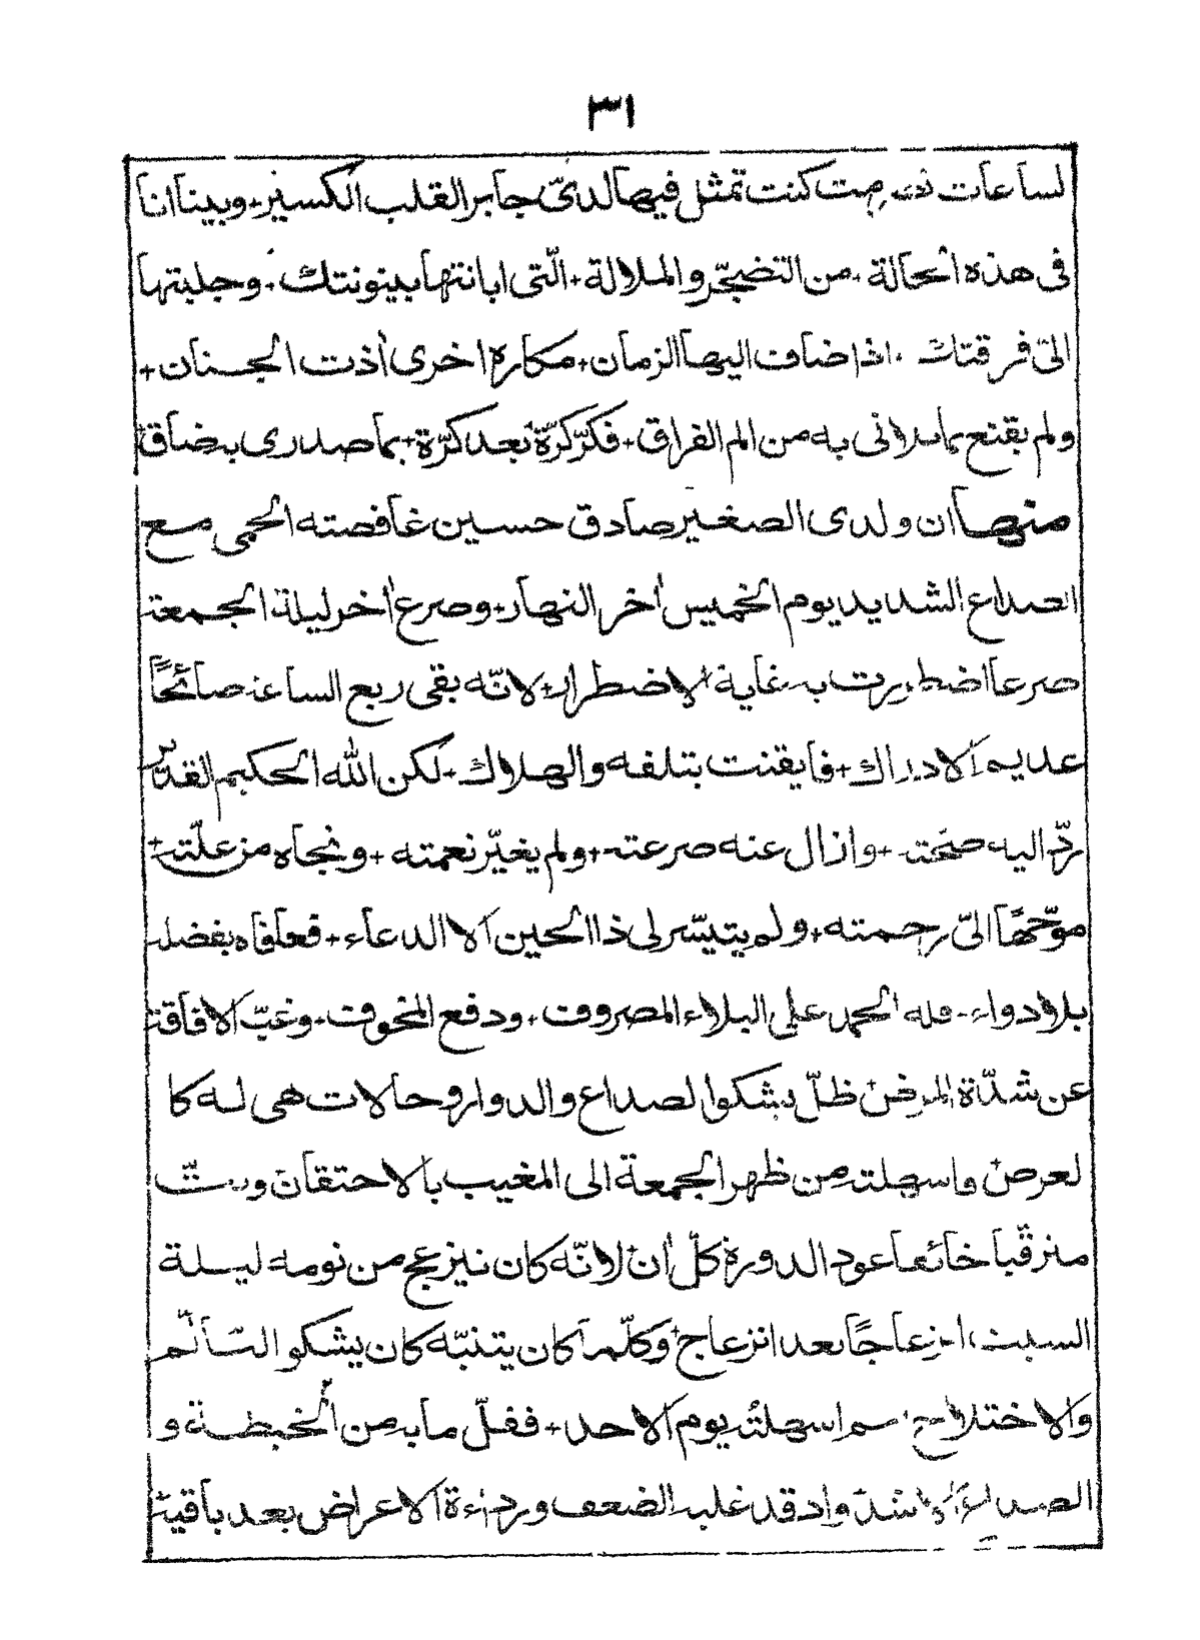 ٣١
لساعات كنت تمثل فيها لدىّ جابر القلب الكسير + وبينا انا
فى هذه الحالة + من التضجّر والملالة + الّتى ابانتها بينونتك + وجلبتها
الىّ فرقتك + اذ اضاف اليها الزمان + مكاره اخرى أذت الجنان +
ولم يقنع بما بلانى به من الم الفراق + فكرّ كرّة بعد كرّة + بما صدرى به ضاق
منها ان ولدى الصغير صادق حسين غافصته الحمى مع
الصداع الشديد يوم الخميس أخر النهار + وصرع أخر ليلة الجمعة
صرعا اضطربت به غاية الاضطرار + لانّه بقى ربع الساعة صائحًا
عديم الادراك + فايقنت بتلفه والهلاك + لكن الله الحكيم القدير
ردّ اليه صحّته + وازال عنه صرعته + ولم يغيّر نعمته + ونجاه من علّته +
موّجهًا الىّ رحمته + ولم يتيسّر لى ذا الحين الا الدعاء + فعافاه بفضله
بلا دواء + فله الحمد على البلاء المصروف + ودفع المخوف + وغبّ الافاقة
عن شدّة المرض ظلّ يشكو الصداع والدوار وحالات هى له كا
لعرض فاسهلته من ظهر الجمعة الى المغيب بالاحتقان وبتّ
مترقّبا خائفا عود الدورة كلّ أن لانّه كان ينزعج من نومه ليلة
السبت انزعاجًا بعد انزعاج وكلّما كان يتنبّه كان يشكو التألّم
والاختلاج ثم اسهلته يوم الاحد + فقلّ ما به من الخبطة و
الصداع الاشدّ واذ قد غلبه الضعف ورداءة الاعراض بعد باقية